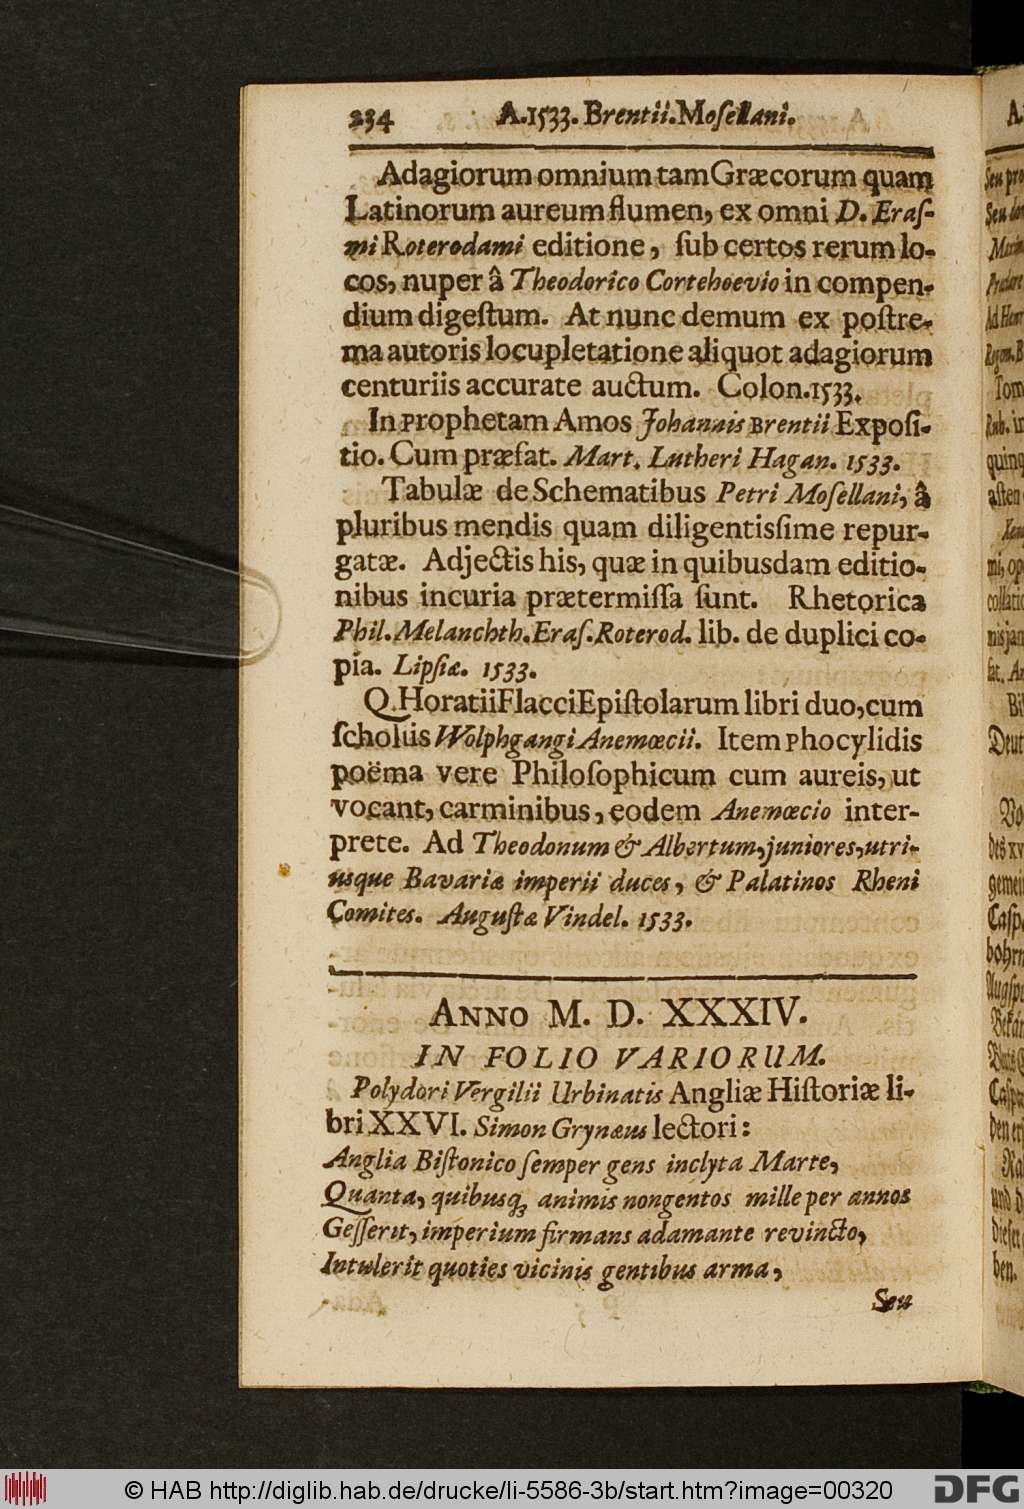 234 A.1533. Brentii. Mosellani.
Adagiorum omnium tam Græcorum quam
Latinorum aureum flumen, ex omni D. Eraſ-
mi Roterodami editione, ſub certos rerum lo-
cos, nuper â Theodorico Cortehoevio in compen-
dium digeſtum. At nunc demum ex poſtre-
ma autoris locupletatione aliquot adagiorum
centuriis accurate auctum. Colon. 1533.
In Prophetam Amos Johannis Brentii Expoſi-
tio. Cum præfat. Mart. Lutheri Hagan. 1533.
Tabulæ de Schematibus Petri Moſellani, â
pluribus mendis quam diligentisſime repur-
gatæ. Adjectis his, quæ in quibusdam editio-
nibus incuria prætermiſſa ſunt. Rhetorica
Phil. Melanchth. Eraſ. Roterod. lib. de duplici co-
pia. Lipſiæ. 1533.
Q. Horatii Flacci Epiſtolarum libri duo, cum
ſcholiis Wolphgangi Anemœcii. Item Phocylidis
poëma vere Philoſophicum cum aureis, ut
vocant, carminibus, eodem Anemœcio inter-
prete. Ad Theodonum & Albertum, juniores, utri-
usque Bavariæ imperii duces, & Palatinos Rheni
Comites. Auguſtæ Vindel. 1533.
ANNO M. D. XXXIV.
IN FOLIO VARIORUM.
Polydori Vergilii Urbinatis Angliæ Hiſtoriæ li-
bri XXVI. Simon Grynæus lectori:
Anglia Biſtonico ſemper gens inclyta Marte,
Quanta, quibusq; animis nongentos mille per annos
Geſſerit, imperium firmans adamante revincto,
Intulerit quoties vicinis gentibus arma,
Seu
© HAB http://diglib.hab.de/drucke/li-5586-3b/start.htm?image=00320
DFG